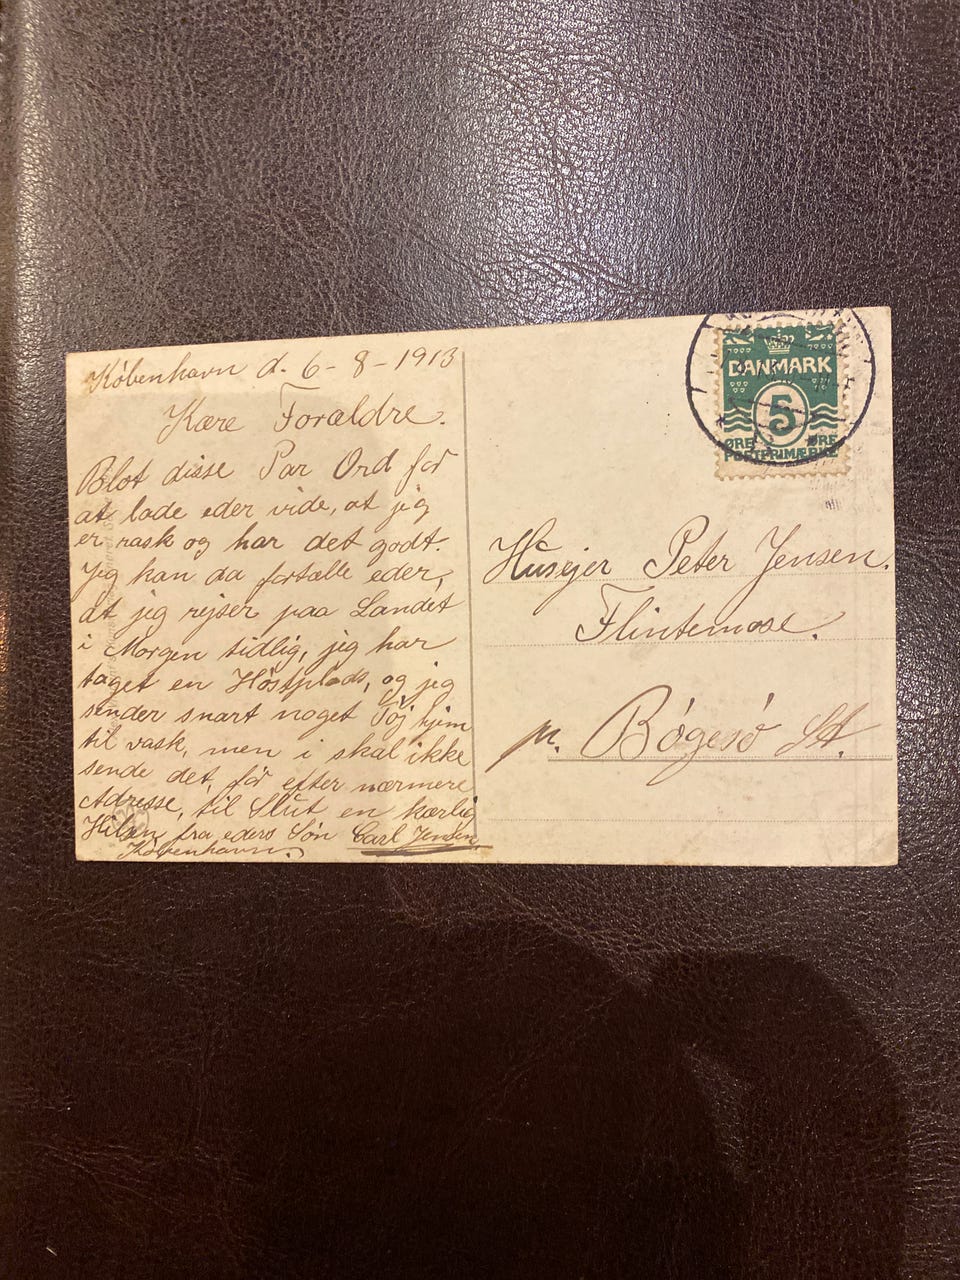 København d. 6 - 8 - 1913
Kære Forældre.
Blot disse Par Ord for
at lade eder vide, at jeg
er rask og har det godt.
Jeg kan da fortælle eder,
at jeg rejser paa Landet
i Morgen tidlig, jeg har
taget en Høstplads, og jeg
sender snart noget Tøj hjem
til vask, men i skal ikke
sende det, før efter nærmere
Adresse, til Slut en kærlig
Hilsen fra eders Søn Carl Jensen,
København.
DANMARK
5
ØRE ØRE
POSTFRIMÆRKE
Husejer Peter Jensen.
Flintemose.
pr. Bögesö St.